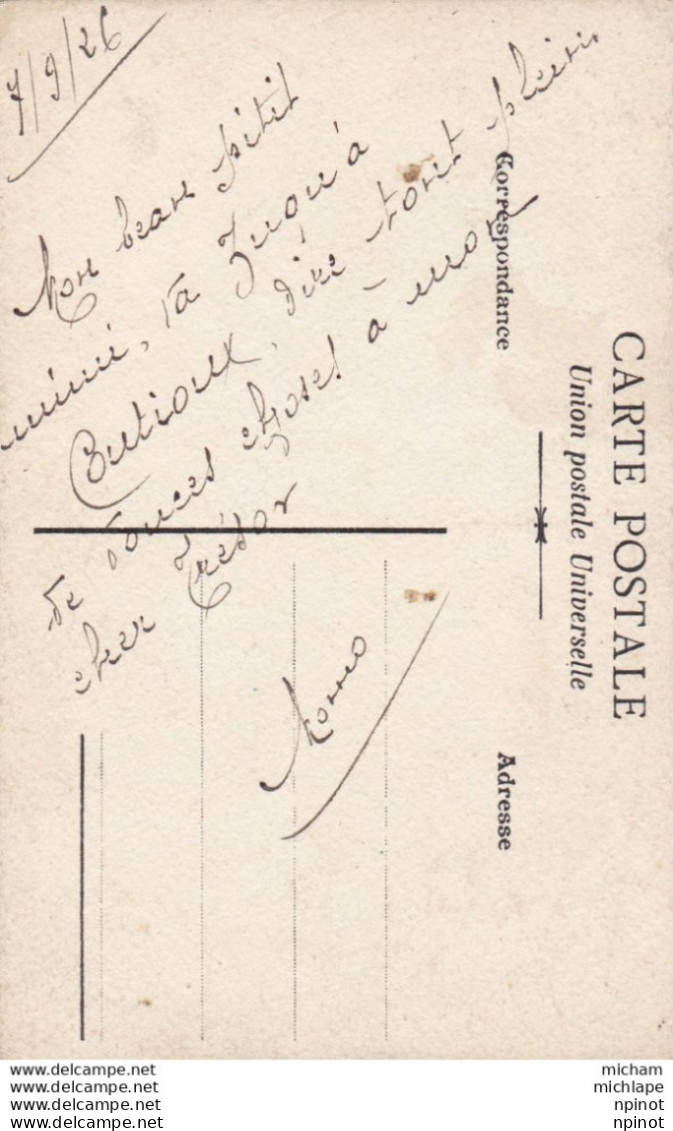 7/9/26
Mon beau petit
mimi, va jusqu'à
Coutioux, dire tout plein
de douces choses à mon
cher Trésor
CARTE POSTALE
Union postale Universelle
Correspondance
Adresse
www.delcampe.net
www.delcampe.net
www.delcampe.net
www.delcampe.net
micham
michlape
npinot
npinot